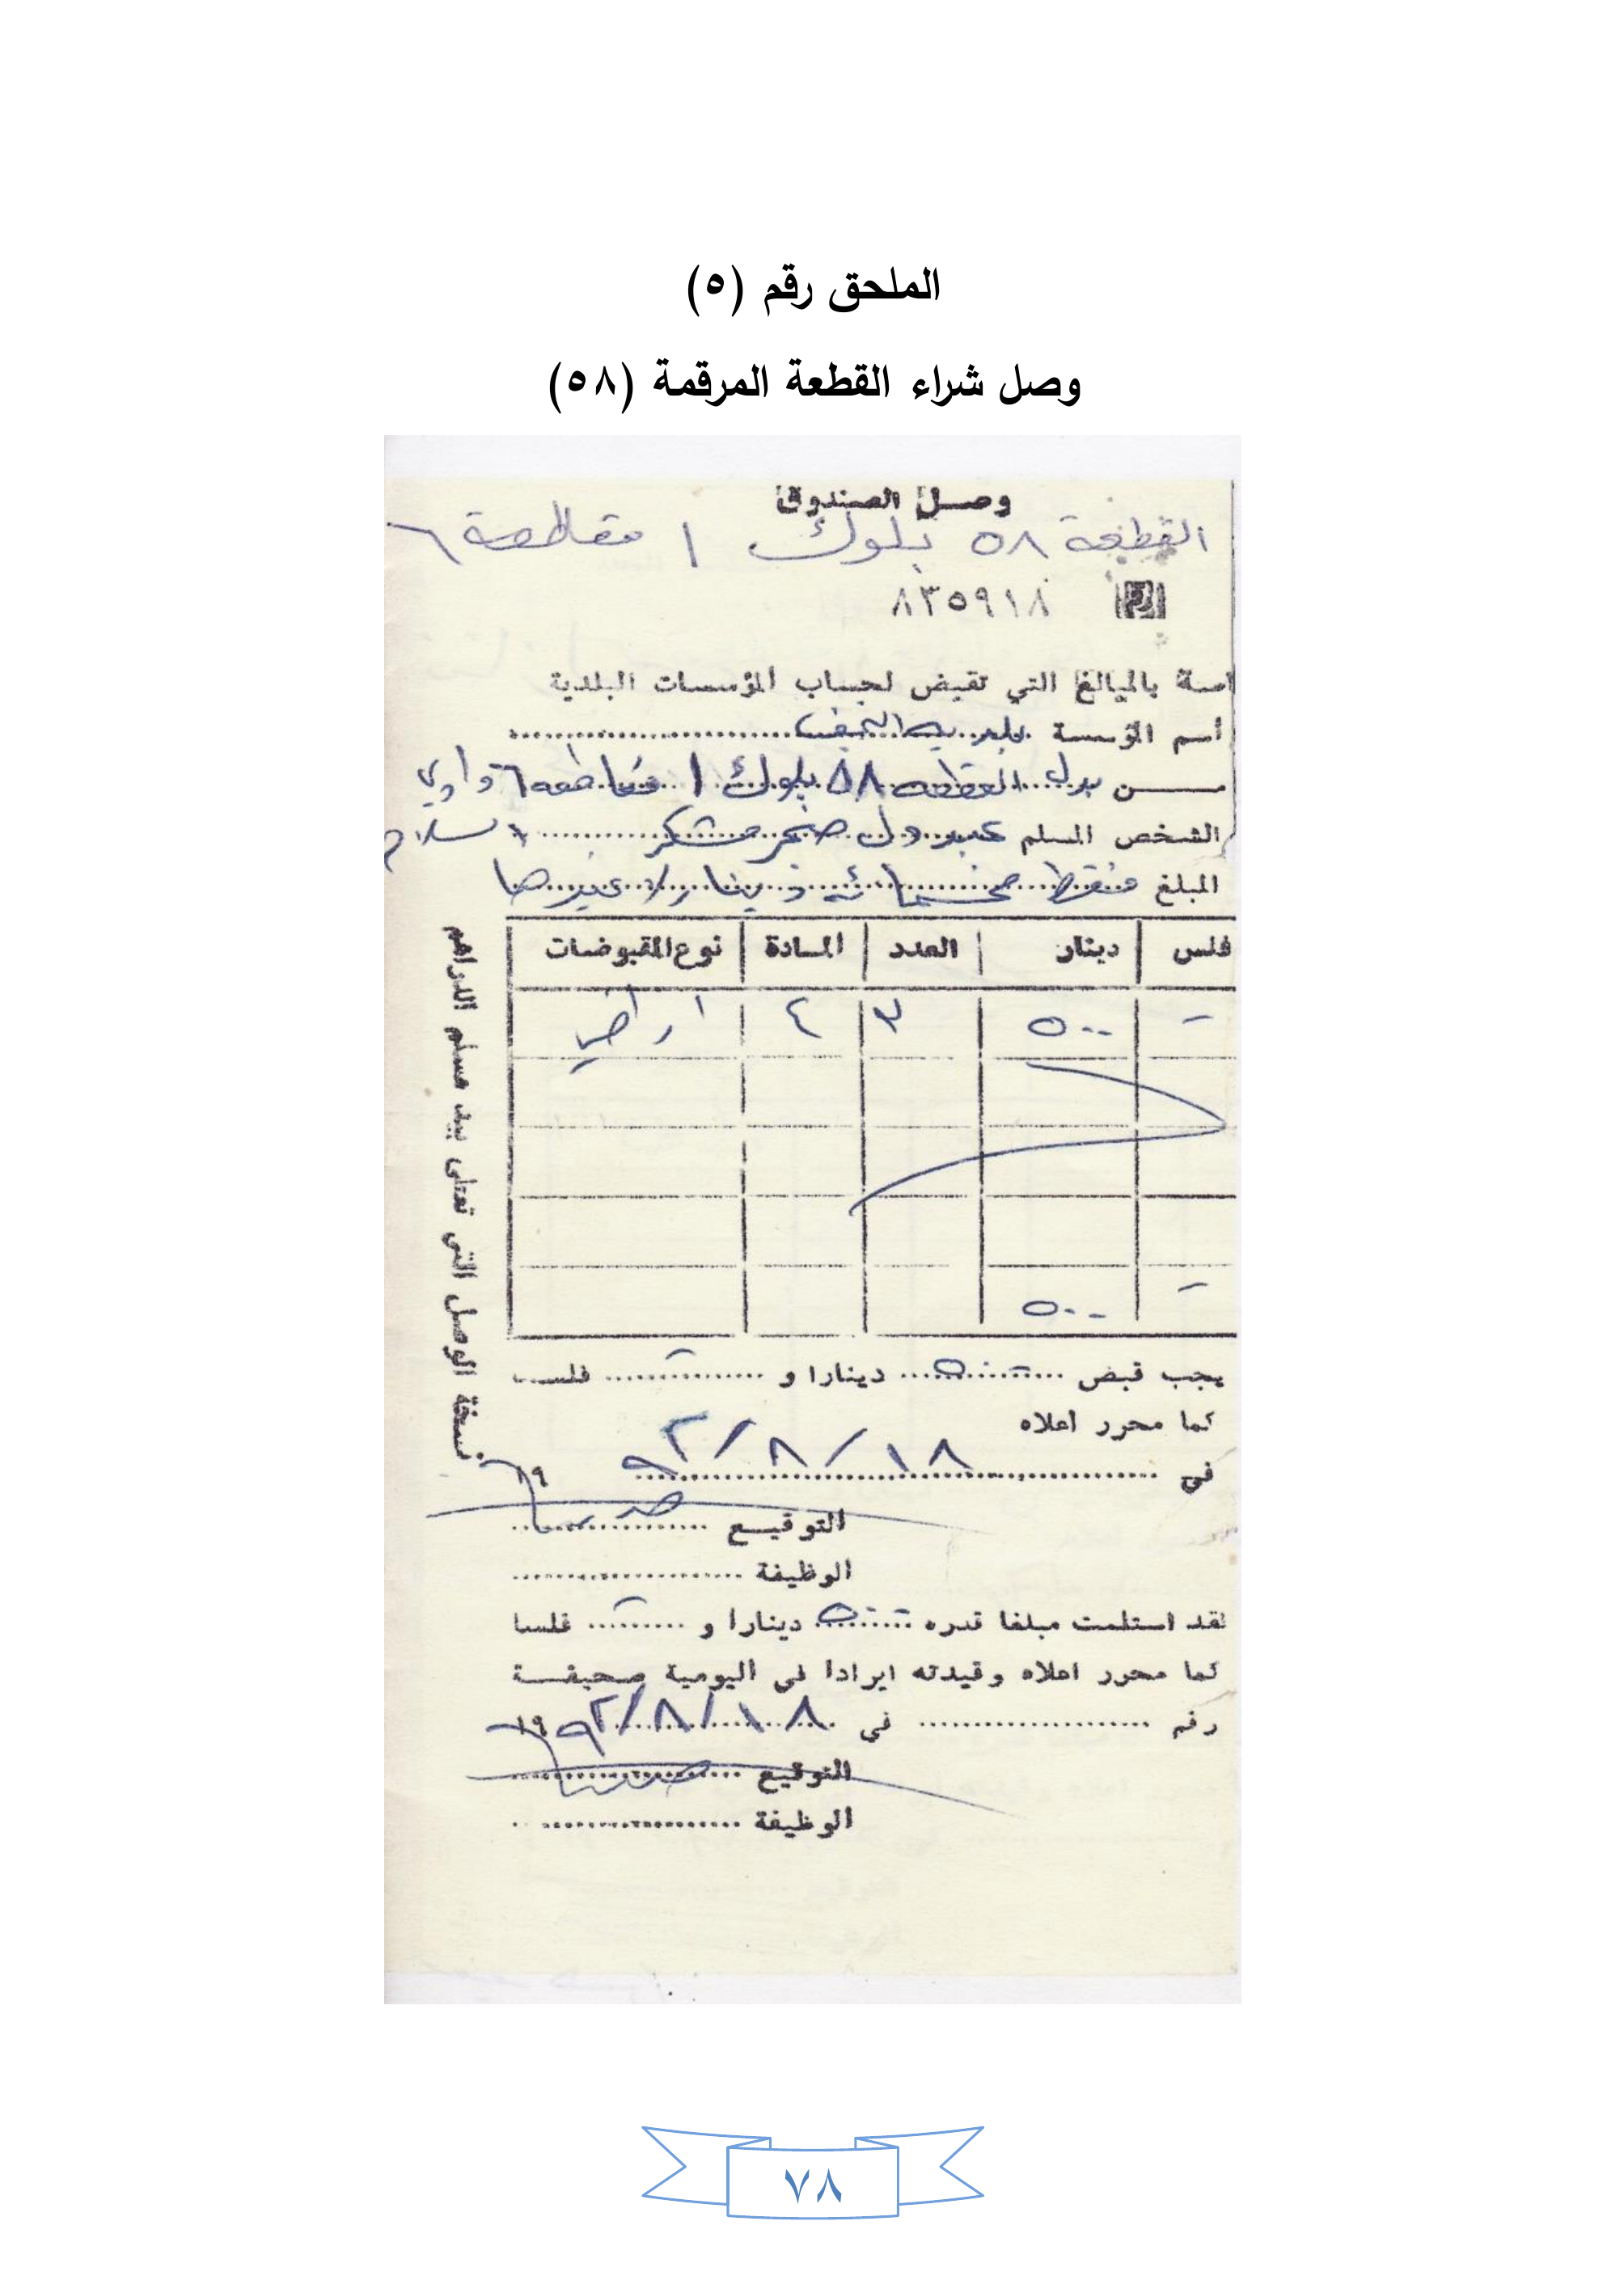 الملحق رقم (٥)
وصل شراء القطعة المرقمة (٥٨)
وصل الصندوق
القطعة ٥٨ بلوك ١ مقاطعة ٦
الرقم ٨٣٥٩١٨
بالمبالغ التي تقبض لحساب المؤسسات البلدية
أسم المؤسسة بلدية النجف
عن بدل القطعه ٥٨ بلوك ١ مقاطعه ٦ وادي
السلام
الشخص المسلم عبد ول مشكر
المبلغ فقط خمسمائة دينار لا غيرها
فلس دينار العدد المادة نوع المقبوضات
- ٥٠٠ ٣ ٤ اراضي
- ٥٠٠
نسخة الوصل التي تعطى بيد مسلم الدراهم
يجب قبض ٥٠٠ دينارا و - فلسا
كما محرر اعلاه
في ١٨/٨/٩٢ ١٩
التوقيع
الوظيفة
لقد استلمت مبلغا قدره ٥٠٠ دينارا و - فلسا
كما محرر اعلاه وقيدته ايرادا في اليومية صحيفة
رقم في ١٨/٨/١٩٩٢
التوقيع
الوظيفة
٧٨